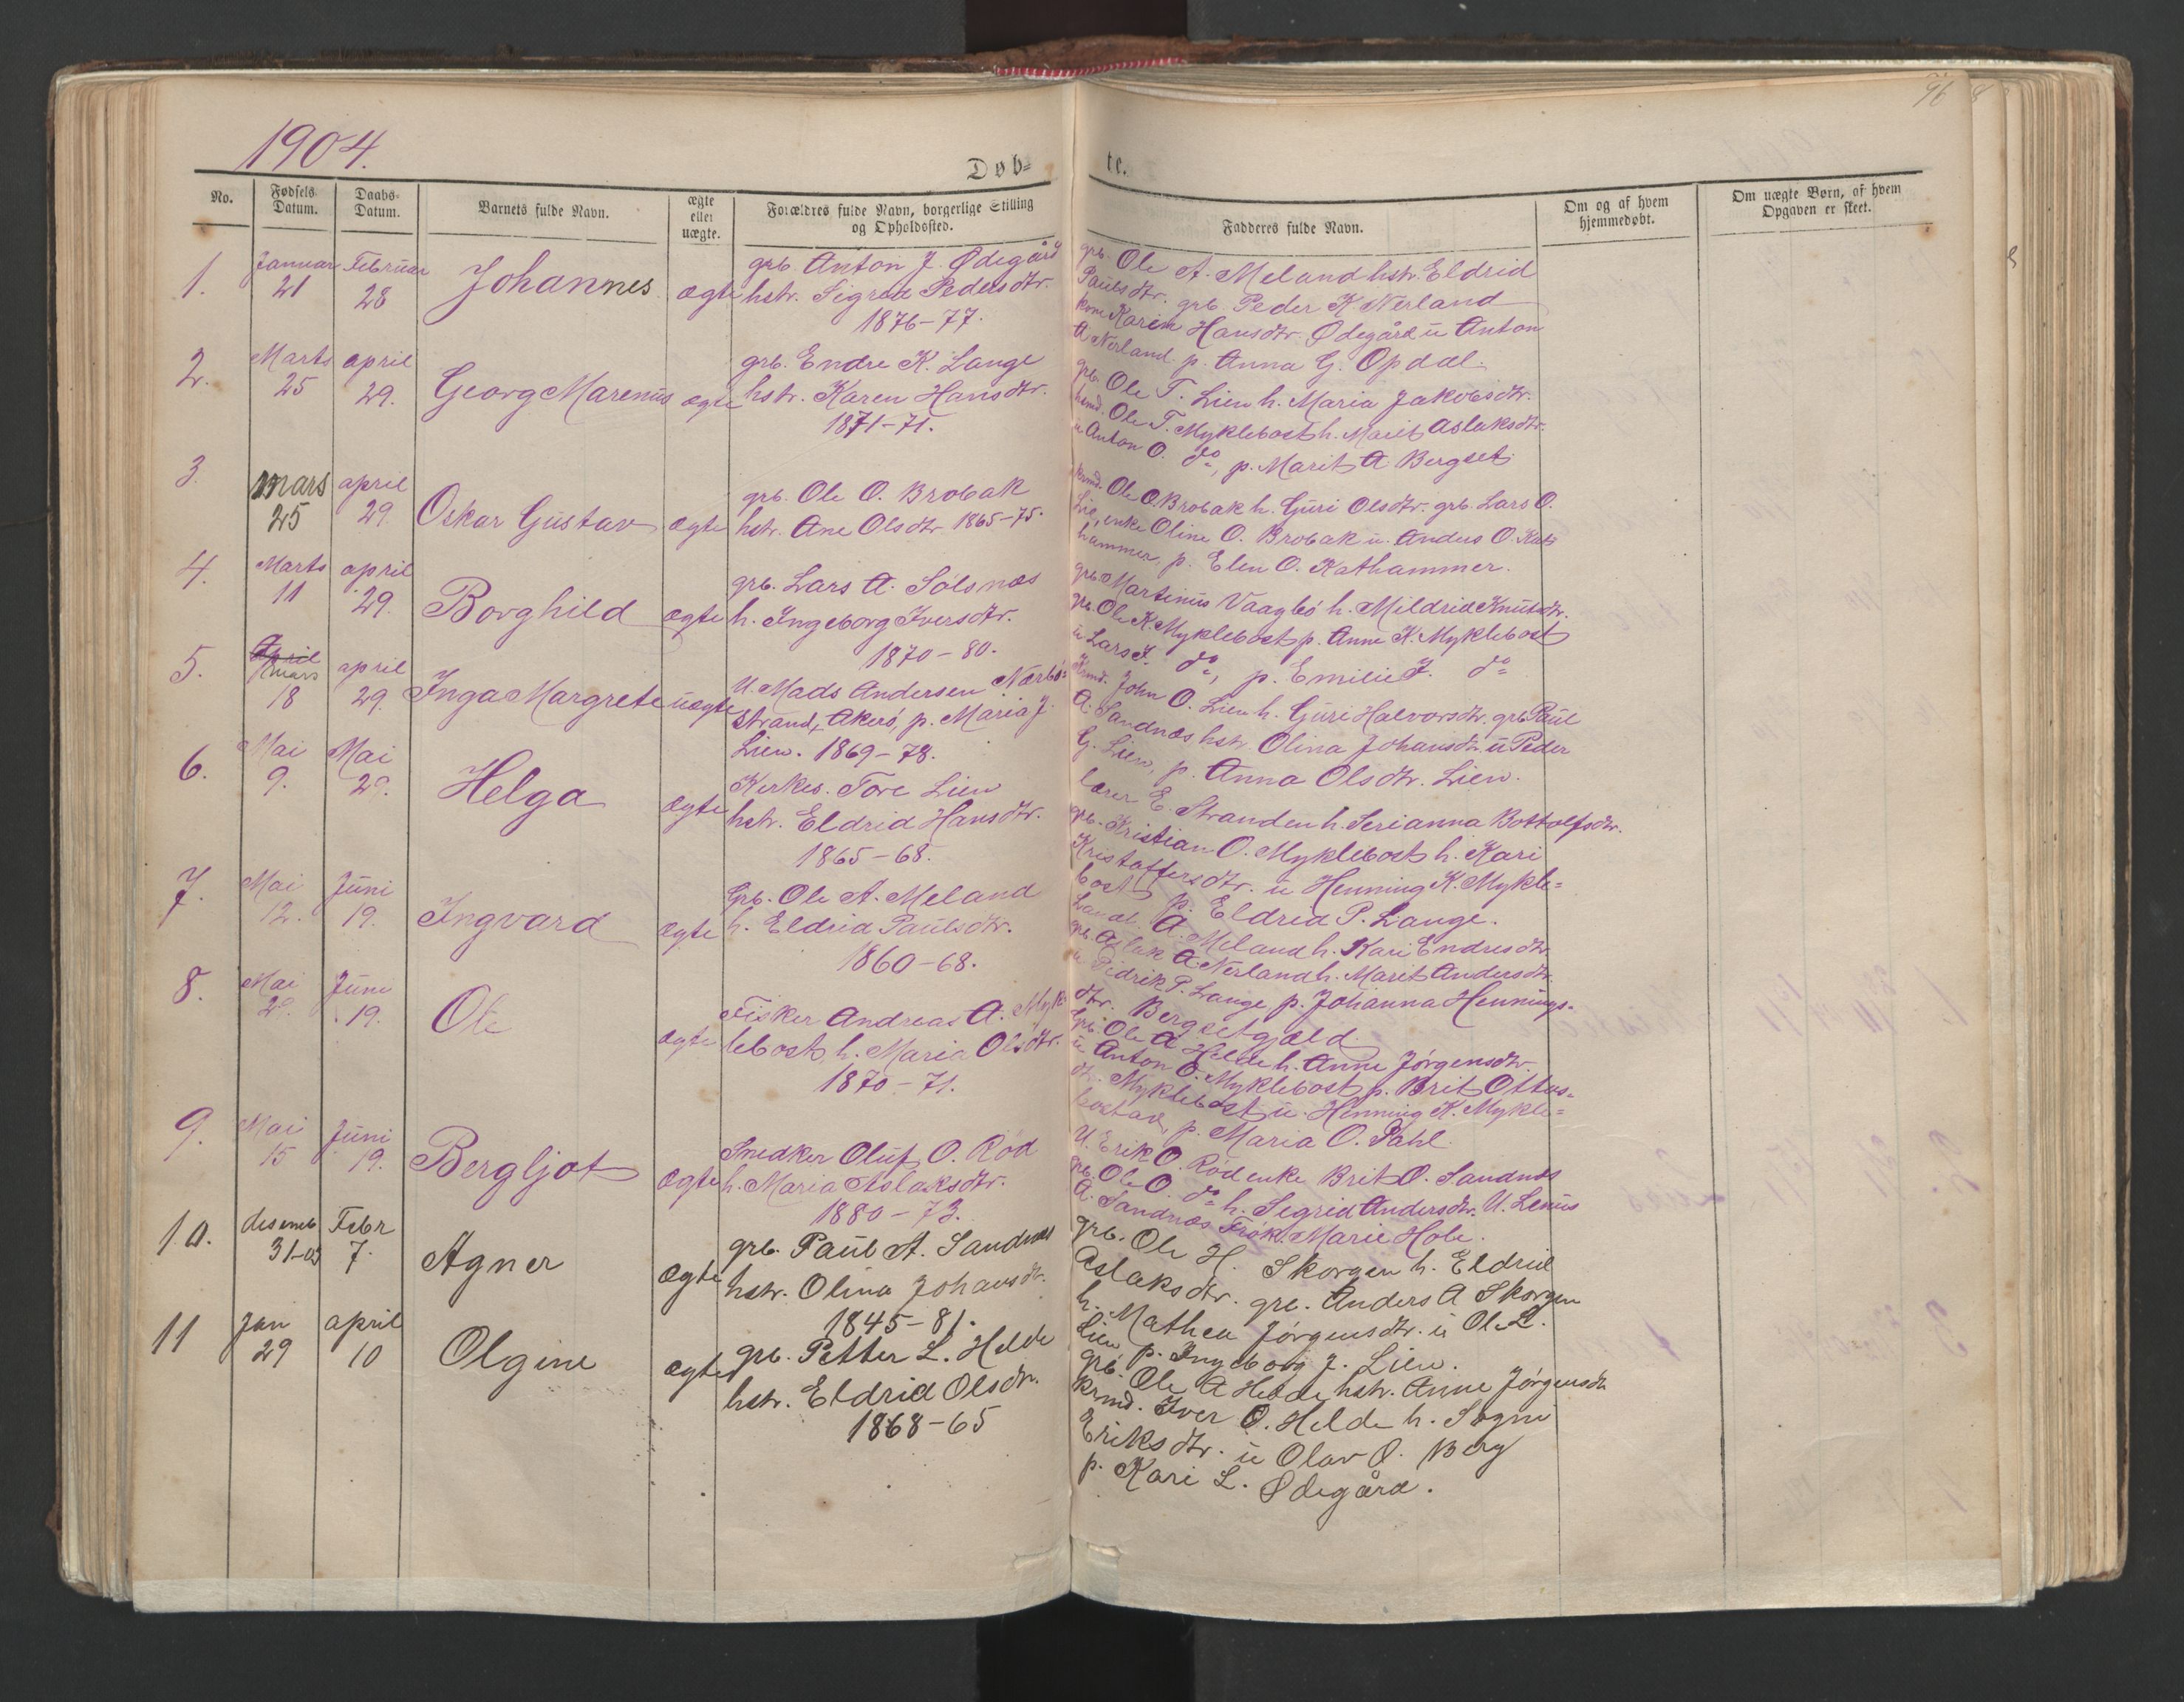 96
1904.
Døb-
te.
No.
Fødsels
Datum.
Daabs-
Datum.
Barnets fulde Navn.
ægte
eller
uægte.
Forældres fulde Navn, borgerlige Stilling
og Opholdssted.
Fadderes fulde Navn.
Om og af hvem
hjemmedøbt.
Om uægte Børn, af hvem
Opgaven er skeet.
1.
Januar
21
Februar
28
Johannes
ægte
grb. Anton J. Ødegård
hstr. Sigrid Pedersdtr.
1876-77.
grb. Ole A. Meland hstr. Eldrid
Paulsdtr. grb. Peder K Nerland
kone Karen Hansdtr. Ødegård u Anton
A Nerland p. Anna G. Opdal.
2.
Marts
25
april
29.
Georg Marenus
ægte
grb. Endre K. Lange
hstr. Karen Hansdtr.
1871-71.
grb. Ole T. Lien h. Maria Jakobsdtr.
Ole T. Myklebost h. Marit Aslaksdtr.
u Anton O. do, p. Marit A Bergset
3.
mars
25
april
29.
Oskar Gustav
ægte
grb. Ole O. Brobak
hstr. Ane Olsdtr 1865-75.
krmd. Ole O. Brobak h. Guri Olsdtr. grb. Lars O.
Lie, enke Oline O. Brobak u. Anders O. Kat
hammer, p. Elen O. Kathammer.
4.
Marts
11
april
29.
Borghild
ægte
grb. Lars A. Solsnæs
h. Ingeborg Iversdtr.
1870-80.
grb. Martinus Vaagbø h. Mildrid Knutsdtr.
grb. Ole K Myklebost p. Anne K. Myklebost
u Lars J. do, p. Emilie J. do
5.
April
mars
18
april
29.
Inga Margrete
uægte
U. Mads Andersen Nærbø-
strand, Akerø, p. Maria J.
Lien. 1869-78.
Krmd. John O. Lien h. Guri Halvorsdtr. grb. Paul
A. Sandnæs hstr. Olina Johansdtr. u Peder
G. Lien, p. Anna Olsdtr. Lien.
6.
Mai
9.
Mai
29.
Helga
ægte
Kirkes. Tore Lien
hstr. Eldrid Hansdtr.
1865-68.
lærer E. Stranden h. Serianna Bottolfsdtr.
grb. Kristian O. Myklebost h. Kari
Kristoffersdtr. u Henning K. Mykle-
bost p. Eldrid P. Lange.
7.
Mai
12.
Juni
19.
Ingvard
ægte
Grb. Ole A. Meland
h. Eldrid Paulsdtr.
1860-68.
A. Meland h. Kari Endresdtr.
grb. Aslak A. Nerland h. Marit Andersdtr.
u Didrik P. Lange p. Johanna Hennings-
dtr. Bergsetgjeld
8.
Mai
28.
Juni
19.
Ole
ægte
Fisker Andreas A. Myk-
lebost, h. Maria Olsdtr.
1870-71.
Grb. Ole A Helde h. Anne Jørgensdtr.
u Anton O. Myklebost p. Brit Ottos-
dtr. Myklebost u. Henning K. Mykle-
bostad, p. Maria O. Dahl.
9.
Mai
15
Juni
19.
Bergljot
ægte
Snedker Oluf O. Rød
h. Maria Aslaksdtr.
1880-73.
U. Erik O. Rød enke Brit O. Sandnæs
grb. Ole O. do h. Sigrid Andersdtr. U. Lenus
A. Sandnæs Frøk. Marie Hole.
10.
desemb
31-03
Febr
7.
Agner
ægte
grb. Paul A. Sandnæs
hstr. Olina Johansdtr.
1845-81.
grb. Ole H. Skorgen h. Eldrid
Aslaksdtr. grb. Anders A Skorgen
h. Mathea Jørgensdtr. u Ole L.
Lien p. Ingeborg J. Lien.
11
Jan
29
april
10
Olgine
ægte
grb. Petter L. Helde
hstr. Eldrid Olsdtr.
1868-65
grb. Ole A Helde, hstr. Anne Jørgensdtr
krmd. Iver O. Helde h. Signi
Eriksdtr. u Olav O. Berg
p. Kari L. Ødegård.